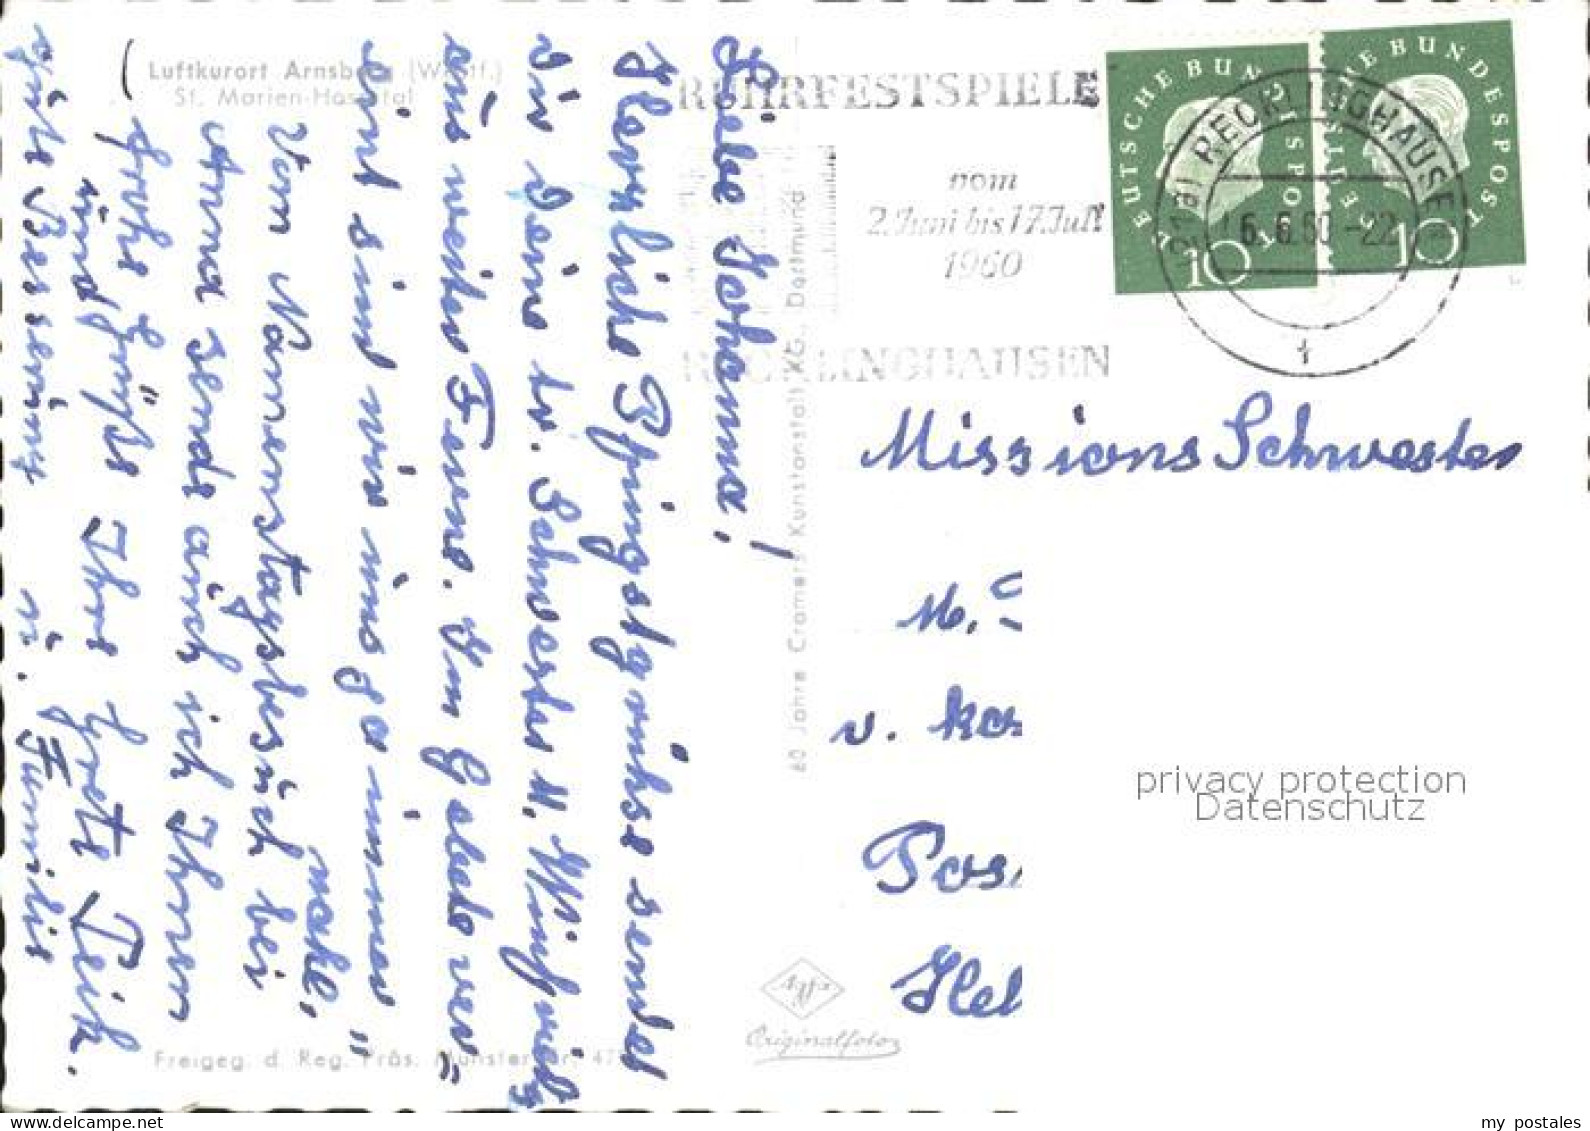 Luftkurort Arnsberg (Westf.)
St. Marien-Hospital
Liebe Johanna!
Herrliche Pfingstgrüße sendet
dir deine lb. Schwester M. Winfrieda
aus weiter Ferne. Im Gebete ver=
eint sind wir uns ja immer"
nahe,
Vom Namenstagsbesuch bei
Anna sende auch ich Ihnen
frohe Grüße Ihre Grete Teik.
und
gute Besserung u. Familie
60 Jahre Cramers Kunstanstalt KG., Dortmund
Freigeg. d. Reg. Präs. Münster Nr. 47
Agfa
Originalfoto
RUHRFESTSPIELE
vom
2. Juni bis 17. Juli
1960
RECKLINGHAUSEN
DEUTSCHE BUNDESPOST
10
DEUTSCHE BUNDESPOST
10
(21a) RECKLINGHAUSEN
6.6.60-22
t
Missions Schwester
M.
v.
Pos
Hel
privacy protection
Datenschutz
my postales